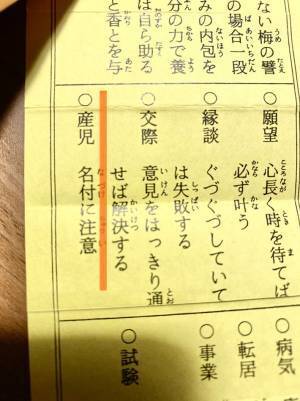 ない梅の譬
の場合一段
みの内包を
分の力で養
は自ら助る
と香とを与
○願望 心長く時を待てば
必ず叶う
○縁談 ぐづぐづしていて
は失敗する
○交際 意見をはっきり通
せば解決する
○産児 名付に注意
○病気
○転居
○事業
○試験